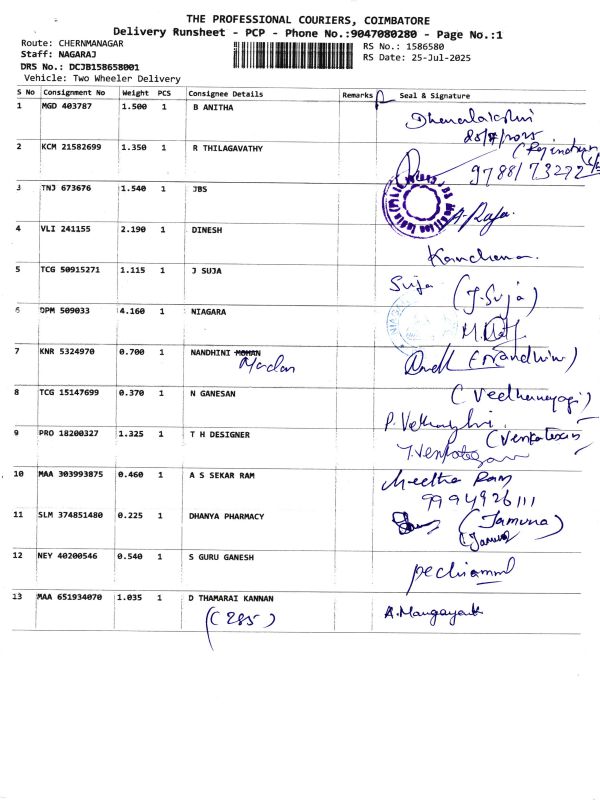 THE PROFESSIONAL COURIERS, COIMBATORE
Delivery Runsheet - PCP - Phone No.:9047080280 - Page No.:1
Route: CHERNMANAGAR
Staff: NAGARAJ
RS No.: 1586580
DRS No.: DCJB158658001
RS Date: 25-Jul-2025
Vehicle: Two Wheeler Delivery
S No Consignment No Weight PCS Consignee Details Remarks Seal & Signature
1 MGD 403787 1.500 1 B ANITHA
2 KCM 21582699 1.350 1 R THILAGAVATHY
97881 73272
3 TNJ 673676 1.540 1 JBS
A. Raja.
4 VLI 241155 2.190 1 DINESH
Kanchana.
5 TCG 50915271 1.115 1 J SUJA
Suja (J. Suja)
6 DPM 509033 4.160 1 NIAGARA
7 KNR 5324970 0.700 1 NANDHINI MOHAN
(Nandhini)
8 TCG 15147699 0.370 1 N GANESAN
9 PRO 18200327 1.325 1 T H DESIGNER
10 MAA 303993875 0.460 1 A S SEKAR RAM
Meetha Ram
9994926111
11 SLM 374851480 0.225 1 DHANYA PHARMACY
(Jamuna)
12 NEY 40200546 0.540 1 S GURU GANESH
13 MAA 651934070 1.035 1 D THAMARAI KANNAN
(C 285)